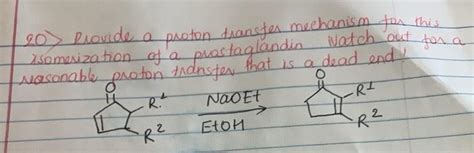 20) Provide a proton transfer mechanism for this
isomerization of a prostaglandin Watch out for a
reasonable proton transfer that is a dead end!
O O
R¹ NaOEt R¹
R² EtOH R²